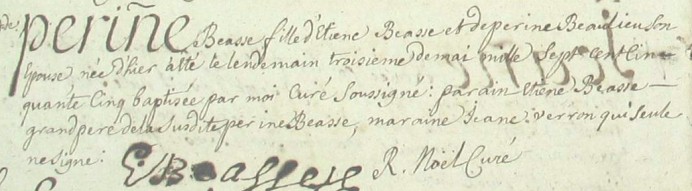 perine Beasse fille d'Etiene Beasse et de perine Beaudieu son
Epouse née d'hier a été le lendemain troisieme de mai mille sept cent cin
quante cinq baptisée par moi Curé soussigné : parain Etiene Beasse
grand pere de la susdite perine Beasse, maraine Jeane verron qui seule
ne signe :
E Beasse R. Noël Curé